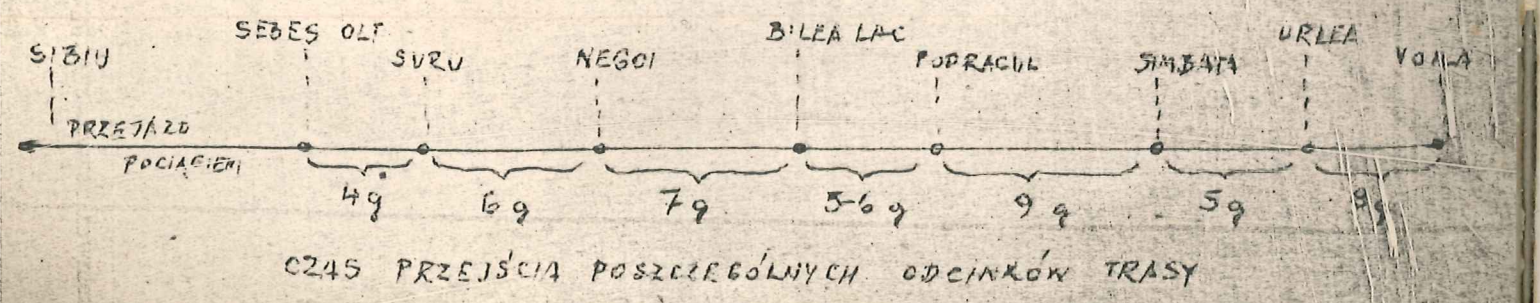 SIBIU
SEBEŞ OLT
SURU
NEGOI
BILEA LAC
PODRAGUL
SIMBATA
URLEA
VOILA
PRZEJAZD
POCIĄGIEM
4g 6g 7g 5-6g 9g 5g
CZAS PRZEJŚCIA POSZCZEGÓLNYCH ODCINKÓW TRASY